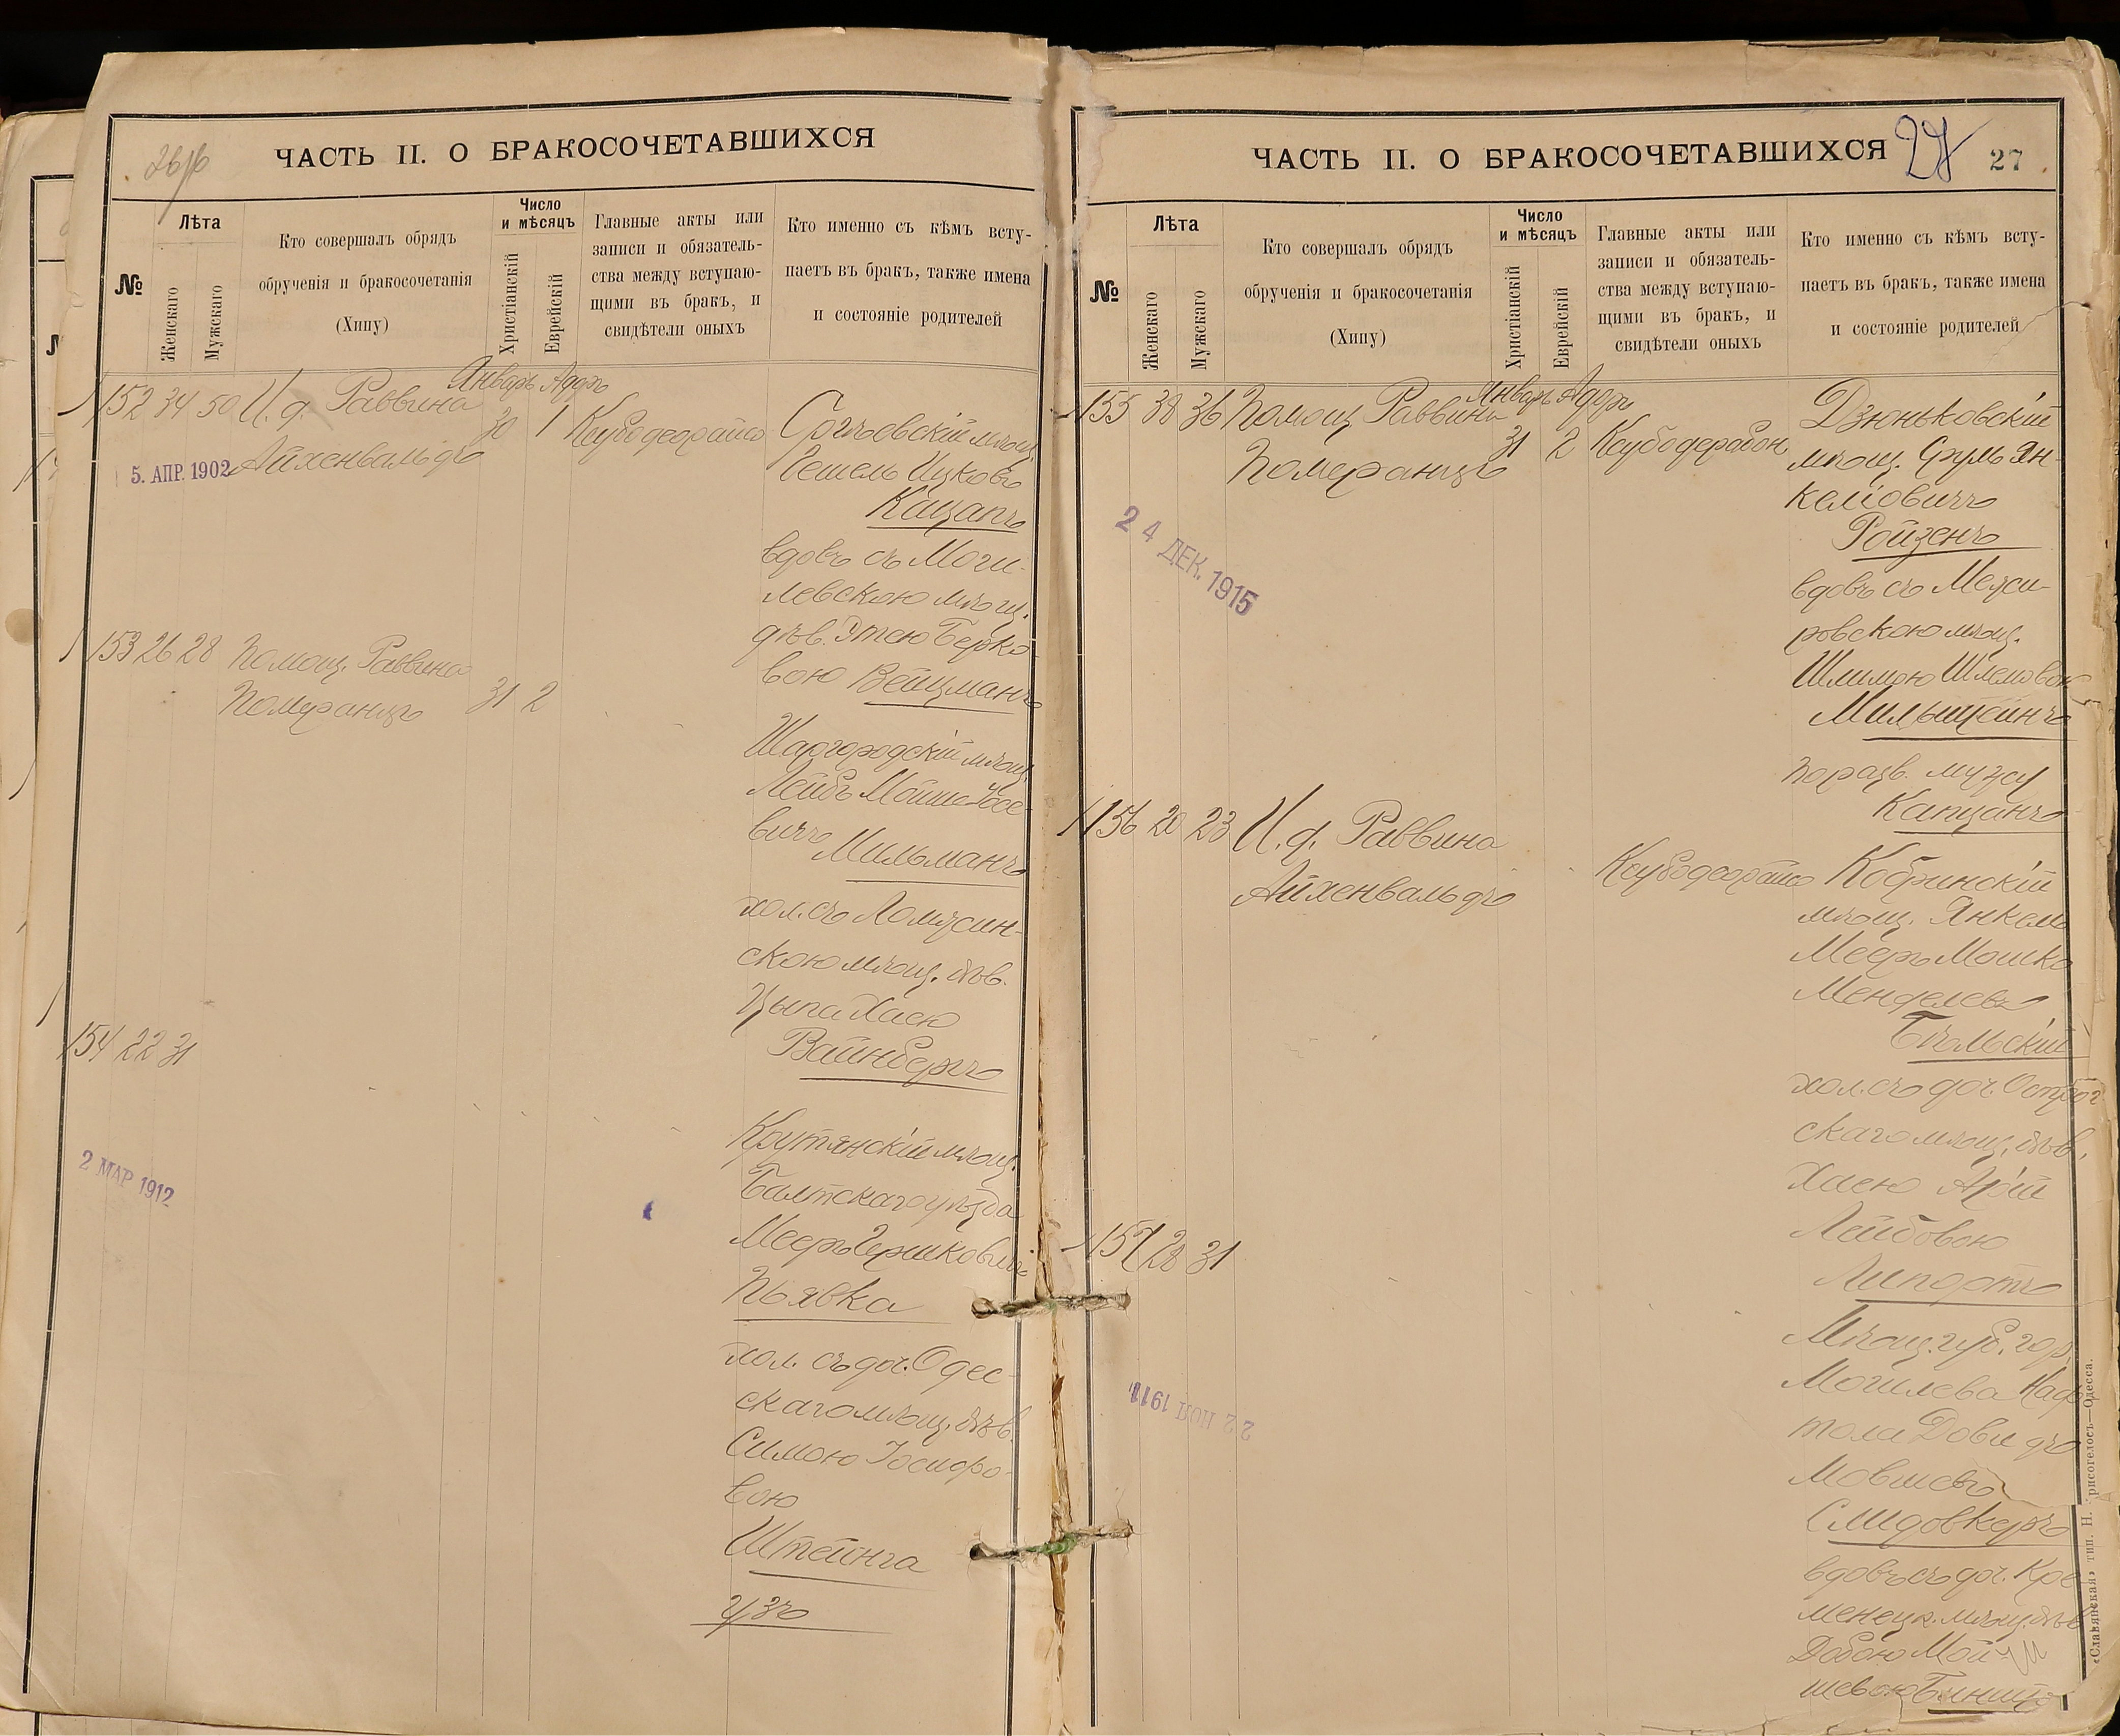 26 об
ЧАСТЬ II. О БРАКОСОЧЕТАВШИХСЯ
№
Лѣта
Женскаго
Мужскаго
Кто совершалъ обрядъ
обрученія и бракосочетанія
(Хипу)
Число
и мѣсяцъ
Христіанскій
Еврейскій
Главные акты или
записи и обязатель-
ства между вступаю-
щими въ бракъ, и
свидѣтели оныхъ
Кто именно съ кѣмъ всту-
паетъ въ бракъ, также имена
и состояніе родителей
Январь Адаръ
152 34 50 И. д. Раввина
Айхенвальдъ
30 1
5. АПР. 1902
мѣщ.
Ицковъ
Кацапъ
вдовъ съ Моги-
левскою мѣщ.
дѣв. Этею Берко-
вою Вейцманъ
153 26 28 Помощ. Раввина
Померанцъ
31 2
Шаргородскій мѣщ.
Лейбъ Мойше
вичъ
Мильманъ
хол. съ
скою мѣщ. дѣв.
Цыпа Хаею
Вайнбергъ
154 22 31
2 МАР 1912
Крутянскій мѣщ.
Балтскаго уѣзда
Мееръ Гершковичъ
Пьявка
хол. съ доч. Одес-
скаго мѣщ. дѣв.
Симою Іосифо-
вою
Штейнга
узъ
ЧАСТЬ II. О БРАКОСОЧЕТАВШИХСЯ
27
27
№
Лѣта
Женскаго
Мужскаго
Кто совершалъ обрядъ
обрученія и бракосочетанія
(Хипу)
Число
и мѣсяцъ
Христіанскій
Еврейскій
Главные акты или
записи и обязатель-
ства между вступаю-
щими въ бракъ, и
свидѣтели оныхъ
Кто именно съ кѣмъ всту-
паетъ въ бракъ, также имена
и состояніе родителей
Январь Адаръ
155 38 36 Помощ. Раввина
Померанцъ
31 2
24 ДЕК. 1915
Дзюньковскій
мѣщ. Сруль Ян-
келовичъ
Ройзенъ
вдовъ съ Межи-
ровскою мѣщ.
Мильштейнъ
по разв. мужу
Капцанъ
156 20 23 И. д. Раввина
Айхенвальдъ
Кобринскій
мѣщ. Янкель
Мееръ Мошко
Менделевъ
Бѣльскій
хол. съ доч. Острог
скаго мѣщ. дѣв.
Хаею Арій
Лейбовою
157 28 31
22 НОЯ 1911
Мѣщ. губ. гор.
Могилева Наф
тола Довидъ
Мовшевъ
Слидовкеръ
вдовъ съ доч. Кре
менецк. мѣщ. дѣв
Добою Мой-
шевою
«Славянская» тип. Н. Хрисогелосъ—Одесса.